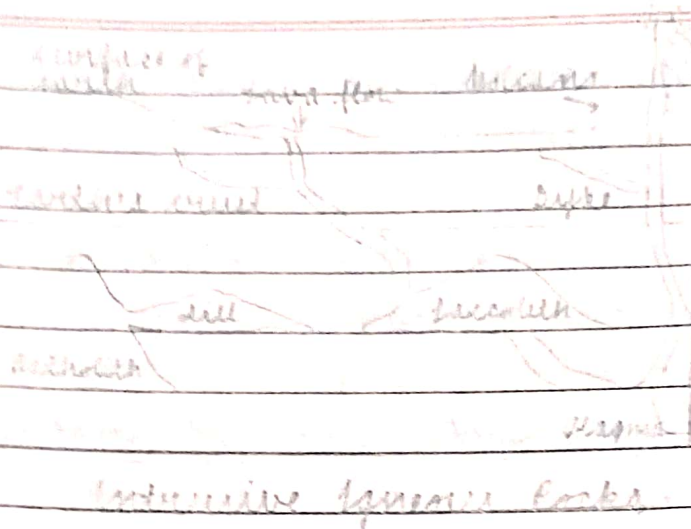 Surface of
earth
Lava flow Volcano
Earth's crust Dyke
Sill Laccolith
Batholith
Magma
Intrusive Igneous Rocks